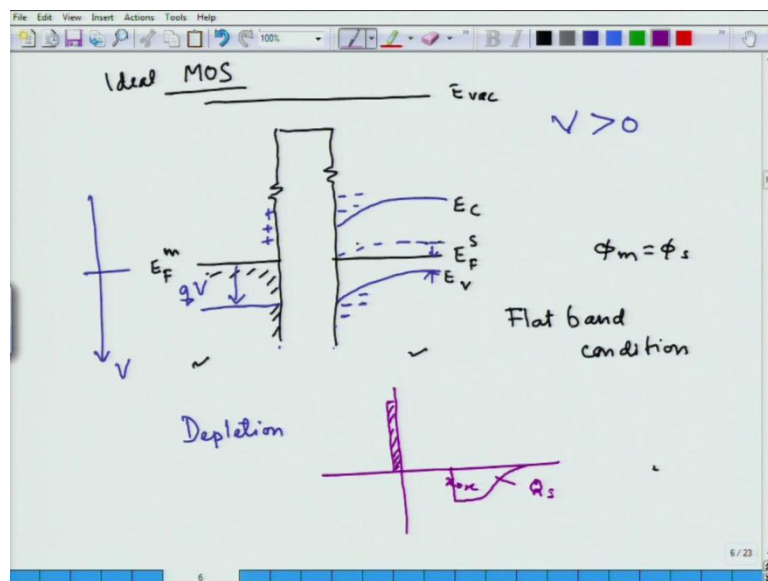 File Edit View Insert Actions Tools Help
100%
B I
Ideal MOS
Evac
V > 0
+ + +
Ec
E_F^m
E_F^s
ϕm = ϕs
qV
Ev
Flat band
condition
V
Depletion
xox
Qs
6 / 23
6